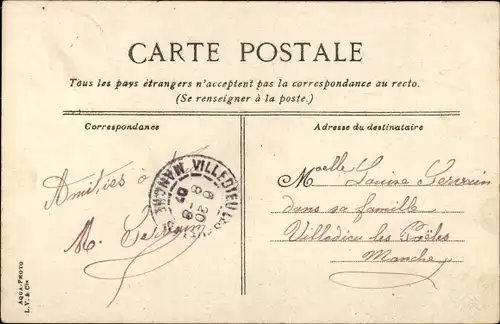 CARTE POSTALE
Tous les pays étrangers n'acceptent pas la correspondance au recto.
(Se renseigner à la poste.)
Correspondance
Adresse du destinataire
Amitiés à
M.
VILLEDIEU LES
MANCHE
6 20
8 - 8
07
Moelle Louise
dans sa famille
Villedieu les Poëles
Manche
AQUA-PHOTO
L. V. & Cie